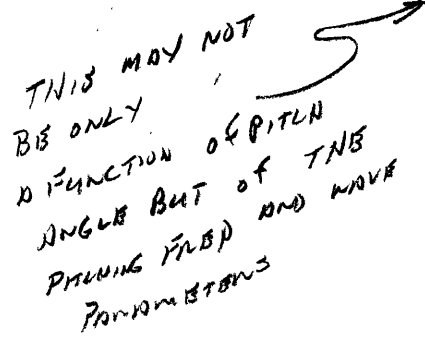 THIS MAY NOT
BE ONLY
A FUNCTION of PITCH
ANGLE BUT of THE
PITCHING FREQ AND WAVE
PARAMETERS